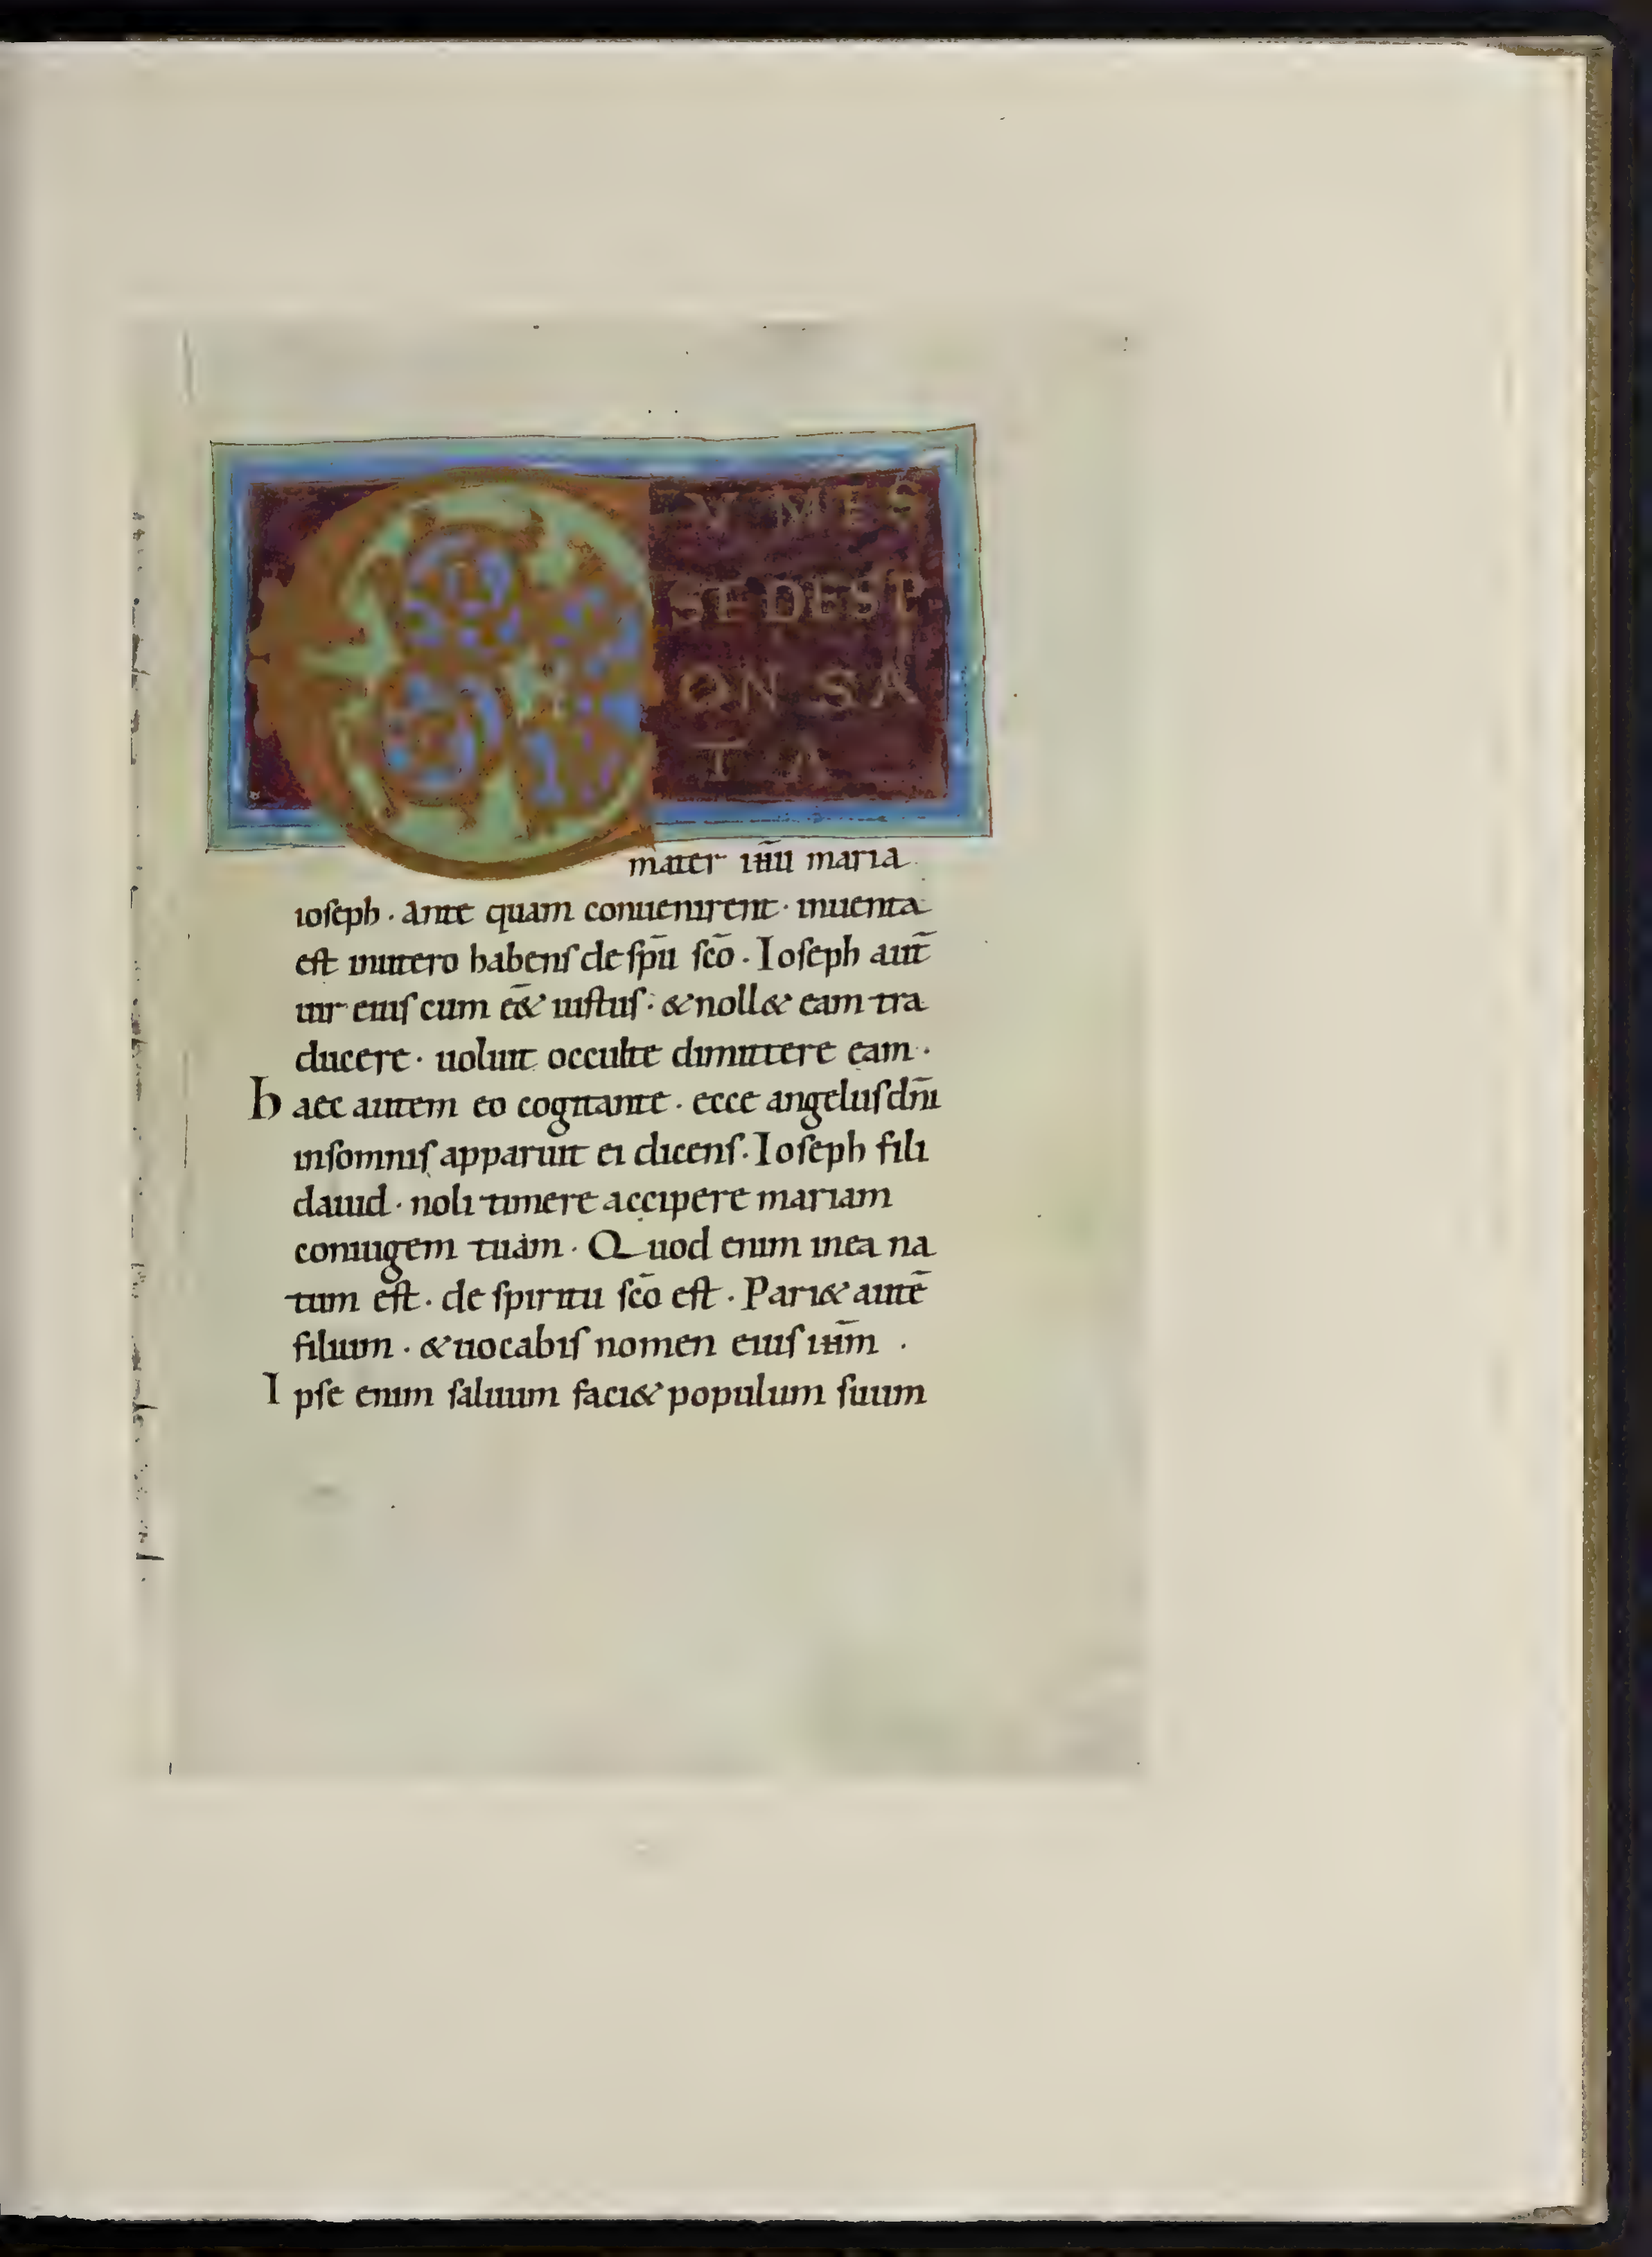 CVM ES
SE DESP
ON SA
TA
mater ihu maria
ioseph · ante quam conuenirent · inuenta
est inutero habens de spū scō · Ioseph aut̄
uir eius cum eē& iustus · &noll& eam tra
ducere · uoluit occulte dimittere eam ·
haec autem eo cogitante · ecce angelus dn̄i
insomnis apparuit ei dicens · Ioseph fili
dauid · noli timere accipere mariam
coniugem tuam · Quod enim inea na
tum est · de spiritu scō est · Pari& autē
filium · &uocabis nomen eius ih̄m ·
Ipse enim saluum faci& populum suum